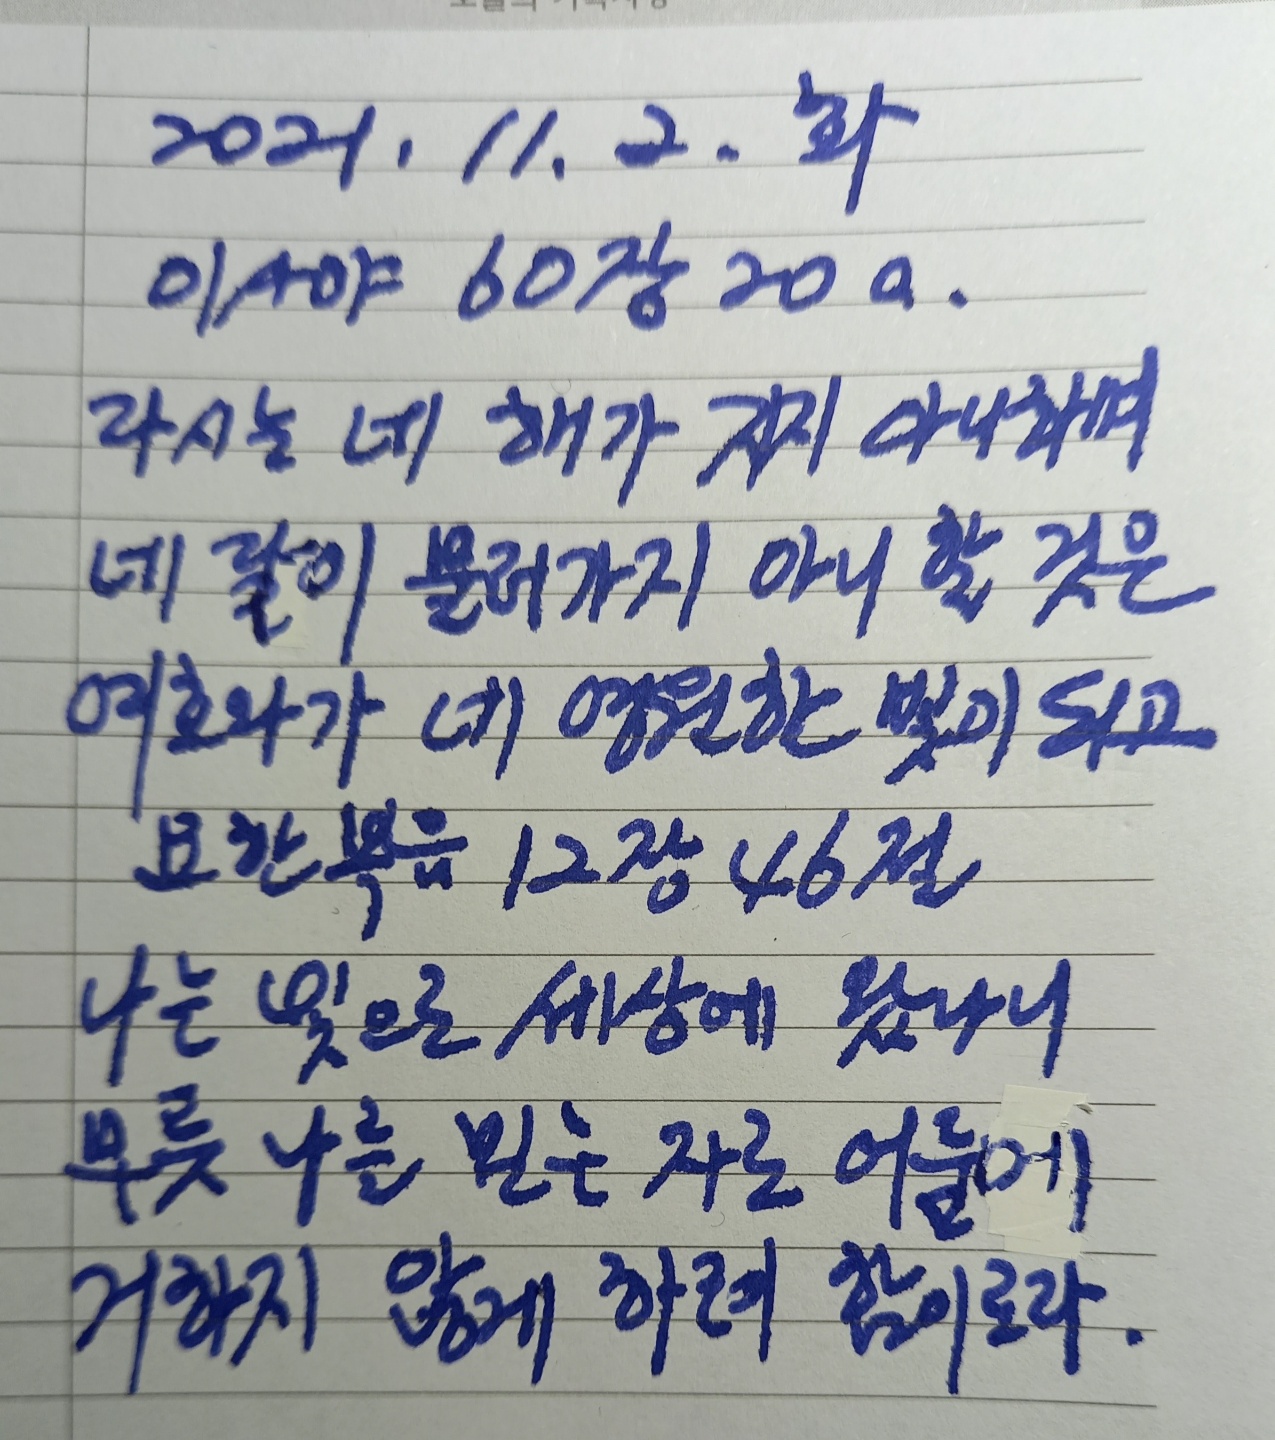 2021. 11. 2. 화
이사야 60장 20 a.
다시는 네 해가 지지 아니하며
네 달이 물러가지 아니 할 것은
여호와가 네 영원한 빛이 되고
요한복음 12장 46절
나는 빛으로 세상에 왔나니
무릇 나를 믿는 자로 어둠에
거하지 않게 하려 함이로라.